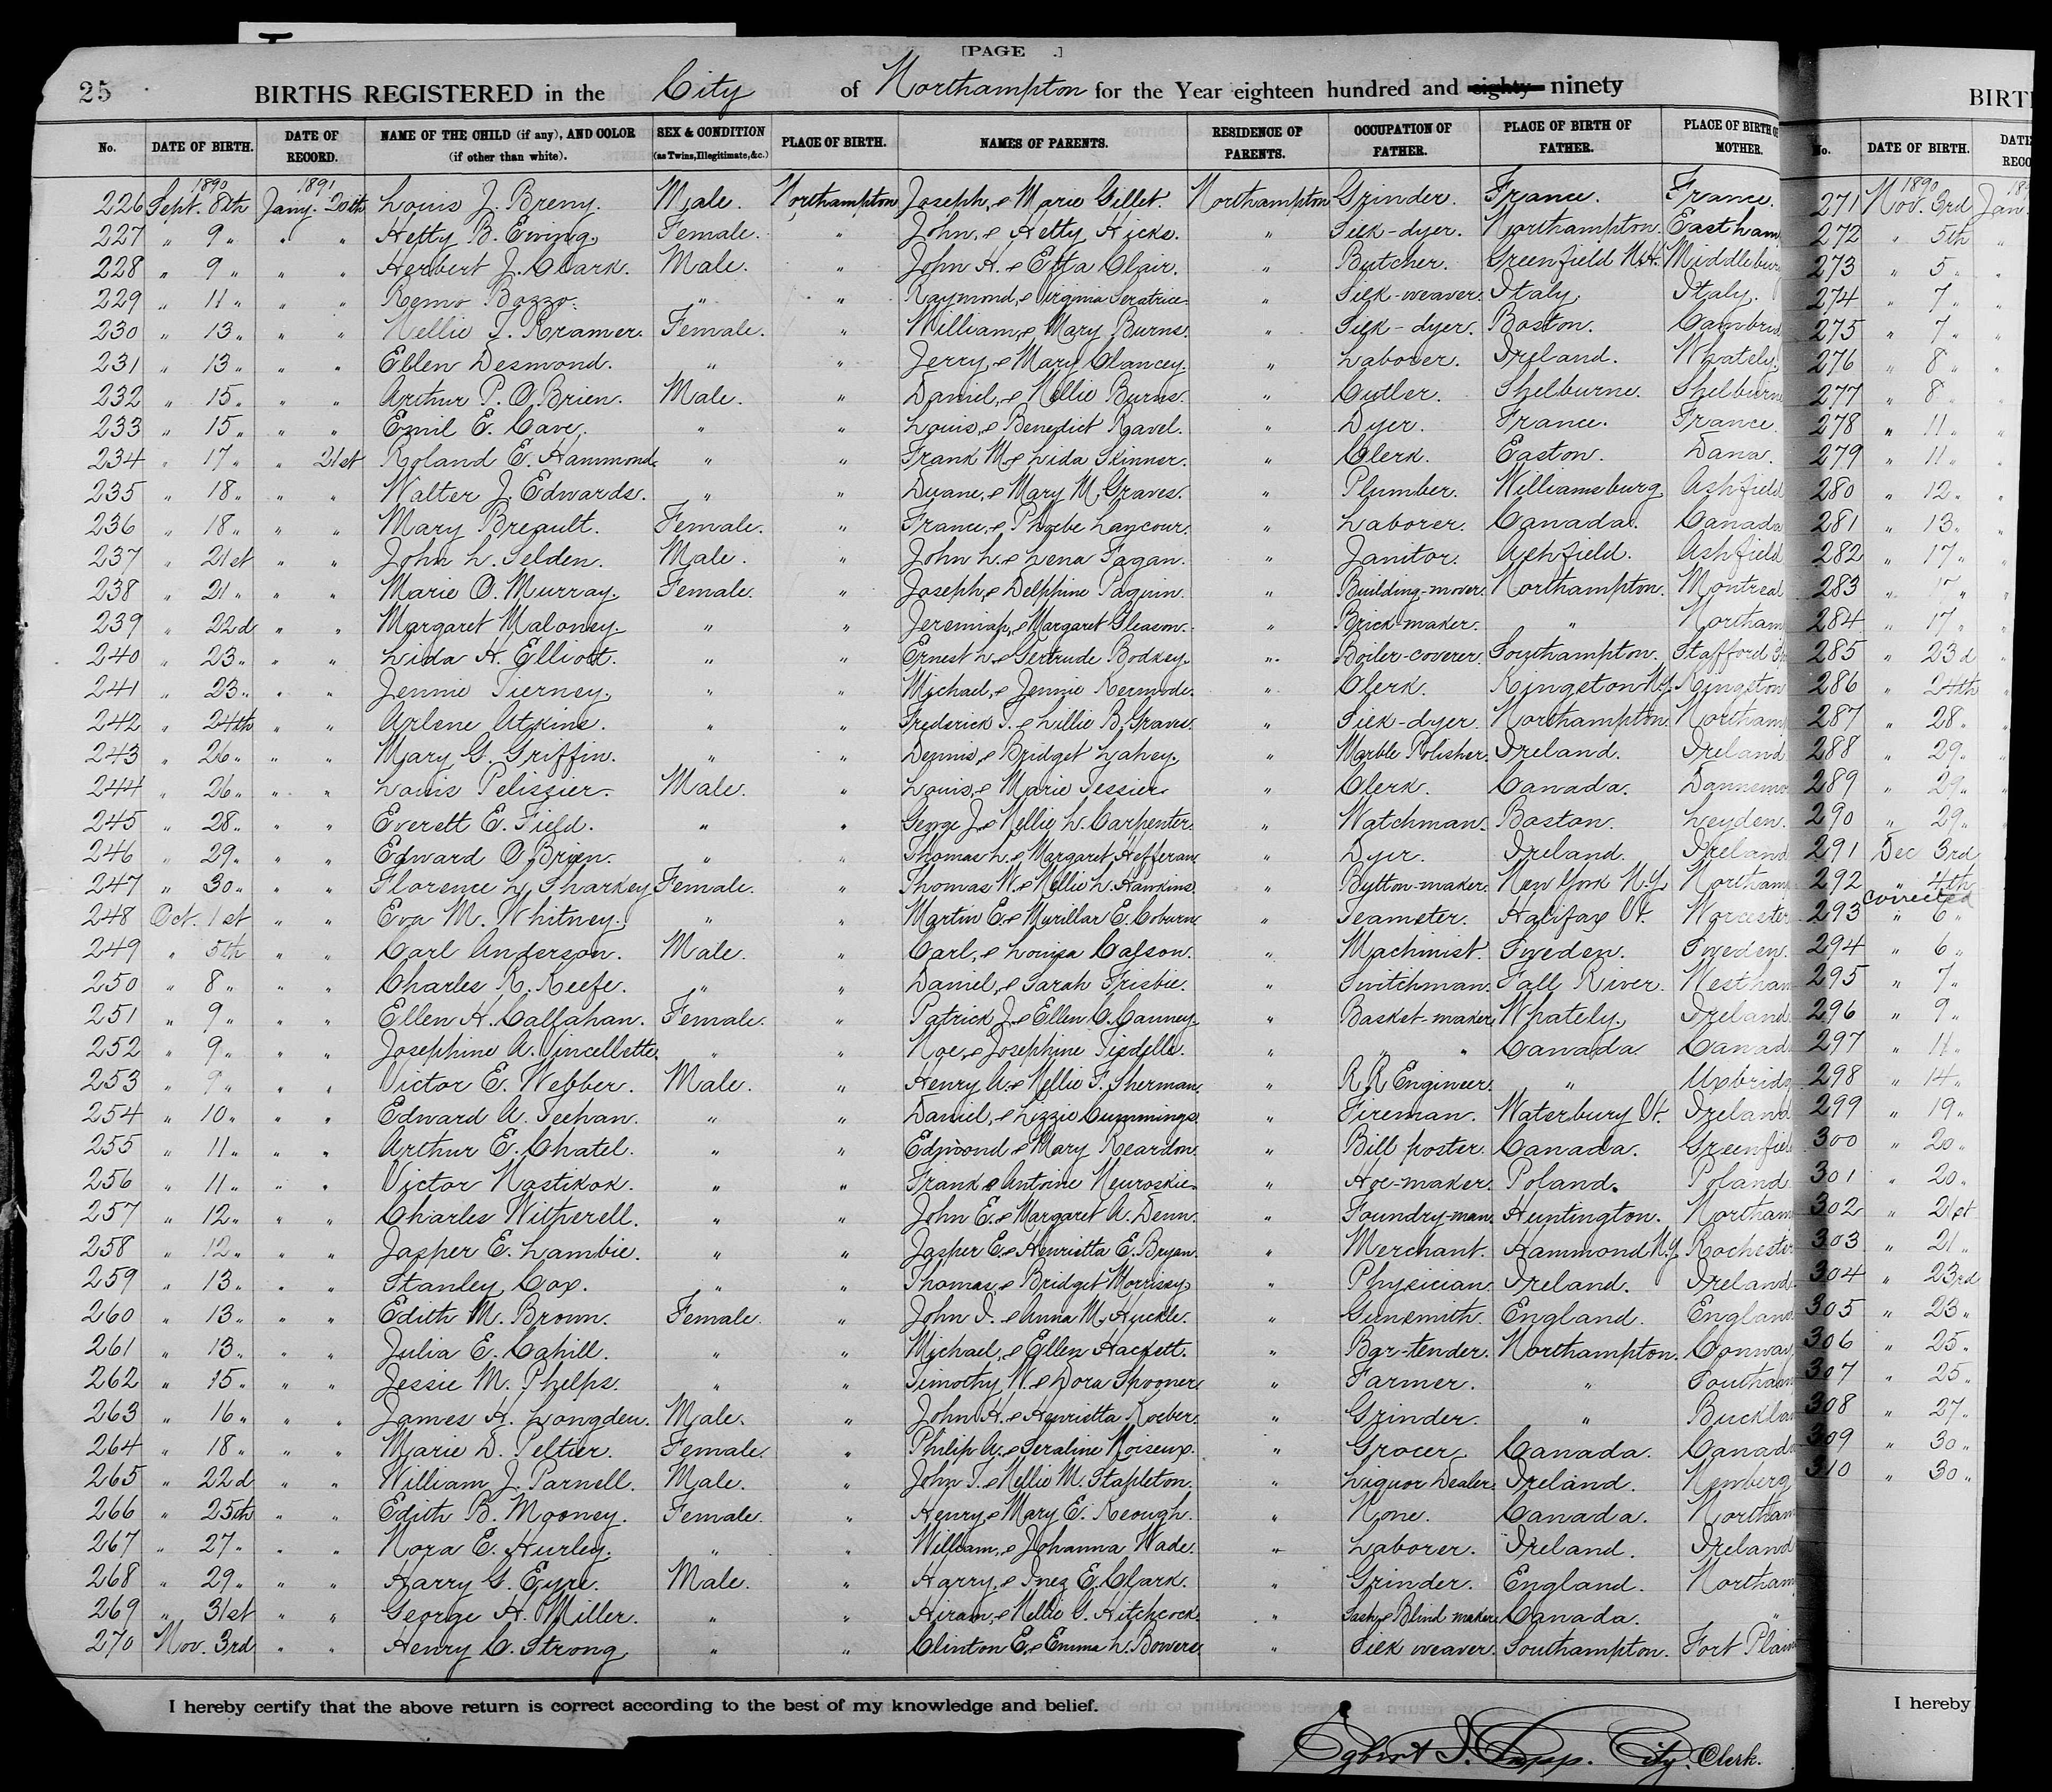 [PAGE .]
25 BIRTHS REGISTERED in the City of Northampton for the Year eighteen hundred and eighty ninety
No. DATE OF BIRTH. DATE OF RECORD. NAME OF THE CHILD (if any), AND COLOR (if other than white). SEX & CONDITION (as Twins, Illegitimate, &c.) PLACE OF BIRTH. NAMES OF PARENTS. RESIDENCE OF PARENTS. OCCUPATION OF FATHER. PLACE OF BIRTH OF FATHER. PLACE OF BIRTH OF MOTHER.
1890 1891
226 Sept. 8th Jany. 20th Louis J. Breny. Male. Northampton Joseph, & Marie Gillet. Northampton Grinder. France. France.
227 " 9 " " " Hetty B. Ewing. Female. " John, & Hetty Hicks. " Silk-dyer. Northampton. Eastham
228 " 9 " " " Herbert J. Clark. Male. " John H. & Etta Clair. " Butcher. Greenfield N.H. Middlebur
229 " 11 " " " Remo Bozzo. " " Raymond, & Virginia " Silk-weaver. Italy. Italy.
230 " 13 " " " Nellie T. Kramer. Female. " William, & Mary Burns. " Silk-dyer. Boston. Cambrid
231 " 13 " " " Ellen Desmond. " " Jerry, & Mary Clancey. " Laborer. Ireland. Whately.
232 " 15 " " " Arthur P. O.Brien. Male. " Daniel, & Nellie Burns. " Cutler. Shelburne. Shelburne
233 " 15 " " " Emil E. Cave. " " Louis, & Benedict Ravel. " Dyer. France. France.
234 " 17 " " 21st Roland E. Hammond. " " Frank M. & Lida Skinner. " Clerk. Easton. Dana.
235 " 18 " " " Walter J. Edwards. " " Duane, & Mary M. Graves. " Plumber. Williamsburg Ashfield
236 " 18 " " " Mary Breault. Female. " France, & Phoebe Lancour. " Laborer. Canada. Canada
237 " 21st " " John L. Selden. Male. " John L. & Lena Fagan. " Janitor. Ashfield. Ashfield
238 " 21 " " " Marie O. Murray. Female. " Joseph, & Delphine Paquin. " Building-mover. Northampton. Montreal
239 " 22d " " Margaret Maloney. " " Jeremiah, & Margaret Gleason. " Brick maker. " Northam
240 " 23 " " " Lida H. Elliott. " " Ernest L. & Gertrude Bodkey. " Boiler-coverer. Southampton. Stafford
241 " 23 " " " Jennie Tierney. " " Michael, & Jennie Kermode. " Clerk. Kingston N.Y. Kingston
242 " 24th " " Arlene Atkins. " " Frederick T. & Lillie B. Graves. " Silk-dyer. Northampton. Northam
243 " 26 " " " Mary G. Griffin. " " Dennis, & Bridget Lahey. " Marble Polisher. Ireland. Ireland
244 " 26 " " " Louis Pelissier. Male. " Louis, & Marie Tessier. " Clerk. Canada. Dannemo
245 " 28 " " " Everett E. Field. " " George J. & Nellie L. Carpenter. " Watchman. Boston. Leyden.
246 " 29 " " " Edward O.Brien. " " Thomas L. & Margaret Hefferan. " Dyer. Ireland. Ireland
247 " 30 " " " Florence L. Sharkey Female. " Thomas W. & Nellie L. Hawkins. " Button-maker. New York N.Y. Northam
248 Oct. 1st " " Eva M. Whitney. " " Martin E. & Murillar E. Coburn. " Teamster. Halifax Vt. Worcester
249 " 5th " " Carl Anderson. Male. " Carl, & Louisa Calson. " Machinist. Sweden. Sweden.
250 " 8 " " " Charles R. Keefe. " " Daniel, & Sarah Frisbie. " Switchman. Fall River. Westham
251 " 9 " " " Ellen H. Callahan. Female. " Patrick J. & Ellen C. Canney. " Basket-maker. Whately. Ireland
252 " 9 " " " Josephine A. Vincellette. " " Noe, & Josephine " " " Canada Canad
253 " 9 " " " Victor E. Webber. Male. " Henry A. & Nellie F. Sherman. " R R Engineer. " Uxbridg
254 " 10 " " " Edward A. Teehan. " " Daniel, & Lizzie Cummings. " Fireman. Waterbury Vt. Ireland
255 " 11 " " " Arthur E. Chatel. " " Edmond & Mary Reardon. " Bill poster. Canada. Greenfiel
256 " 11 " " " Victor Kostikok. " " Frank & Antoine " Hoe-maker. Poland. Poland
257 " 12 " " " Charles Witherell. " " John E. & Margaret A. Denn. " Foundry-man. Huntington. Northam
258 " 12 " " " Jasper E. Lambie. " " Jasper E. & Henrietta E. Bryan. " Merchant. Hammond N.Y. Rochester
259 " 13 " " " Stanley Cox. " " Thomas, & Bridget Morrissy. " Physician. Ireland. Ireland.
260 " 13 " " " Edith M. Brown. Female. " John I. & Anna M. Huckle. " Gunsmith. England. England
261 " 13 " " " Julia E. Cahill. " " Michael, & Ellen Hackett. " Bar-tender. Northampton. Conway
262 " 15 " " " Jessie M. Phelps. " " Timothy W. & Dora Spooner. " Farmer. " Southam
263 " 16 " " " James H. Longden. Male. " John H. & Henrietta Koeber. " Grinder. " Bucklan
264 " 18 " " " Marie D. Peltier. Female. " Philip A. & Seraline Noiseux. " Grocer. Canada. Canada
265 " 22d " " William J. Parnell. Male. " John T. & Nellie M. Stapleton. " Liquor Dealer. Ireland. Newberg
266 " 25th " " Edith B. Mooney. Female. " Henry, & Mary E. Keough. " None. Canada. Northam
267 " 27 " " " Nora E. Hurley. " " William, & Johanna Wade. " Laborer. Ireland. Ireland
268 " 29 " " " Harry G. Eyre. Male. " Harry, & Inez E. Clark. " Grinder. England. Northam
269 " 31st " " George H. Miller. " " Hiram, & Nellie G. Hitchcock. " Sash, & Blind maker. Canada. "
270 Nov. 3rd " " Henry C. Strong " " Clinton E. & Emma L. Bowers. " Silk weaver. Southampton. Fort Plain
I hereby certify that the above return is correct according to the best of my knowledge and belief.
Egbert I. Clapp. City. Clerk.
BIRT
No. DATE OF BIRTH. DATE RECO
1890 18
271 Nov. 3rd Jan.
272 " 5th "
273 " 5 " "
274 " 7 " "
275 " 7 " "
276 " 8 " "
277 " 8 " "
278 " 11 " "
279 " 11 " "
280 " 12 " "
281 " 13 " "
282 " 17 " "
283 " 17 " "
284 " 17 " "
285 " 23d "
286 " 24th "
287 " 28 " "
288 " 29 " "
289 " 29 " "
290 " 29 "
291 Dec 3rd
292 " 4th
Corrected
293 " 6 "
294 " 6 "
295 " 7 "
296 " 9 "
297 " 11 "
298 " 14 "
299 " 19 "
300 " 20 "
301 " 20 "
302 " 21st
303 " 21 "
304 " 23rd
305 " 23 "
306 " 25 "
307 " 25 "
308 " 27 "
309 " 30 "
310 " 30 "
I hereby